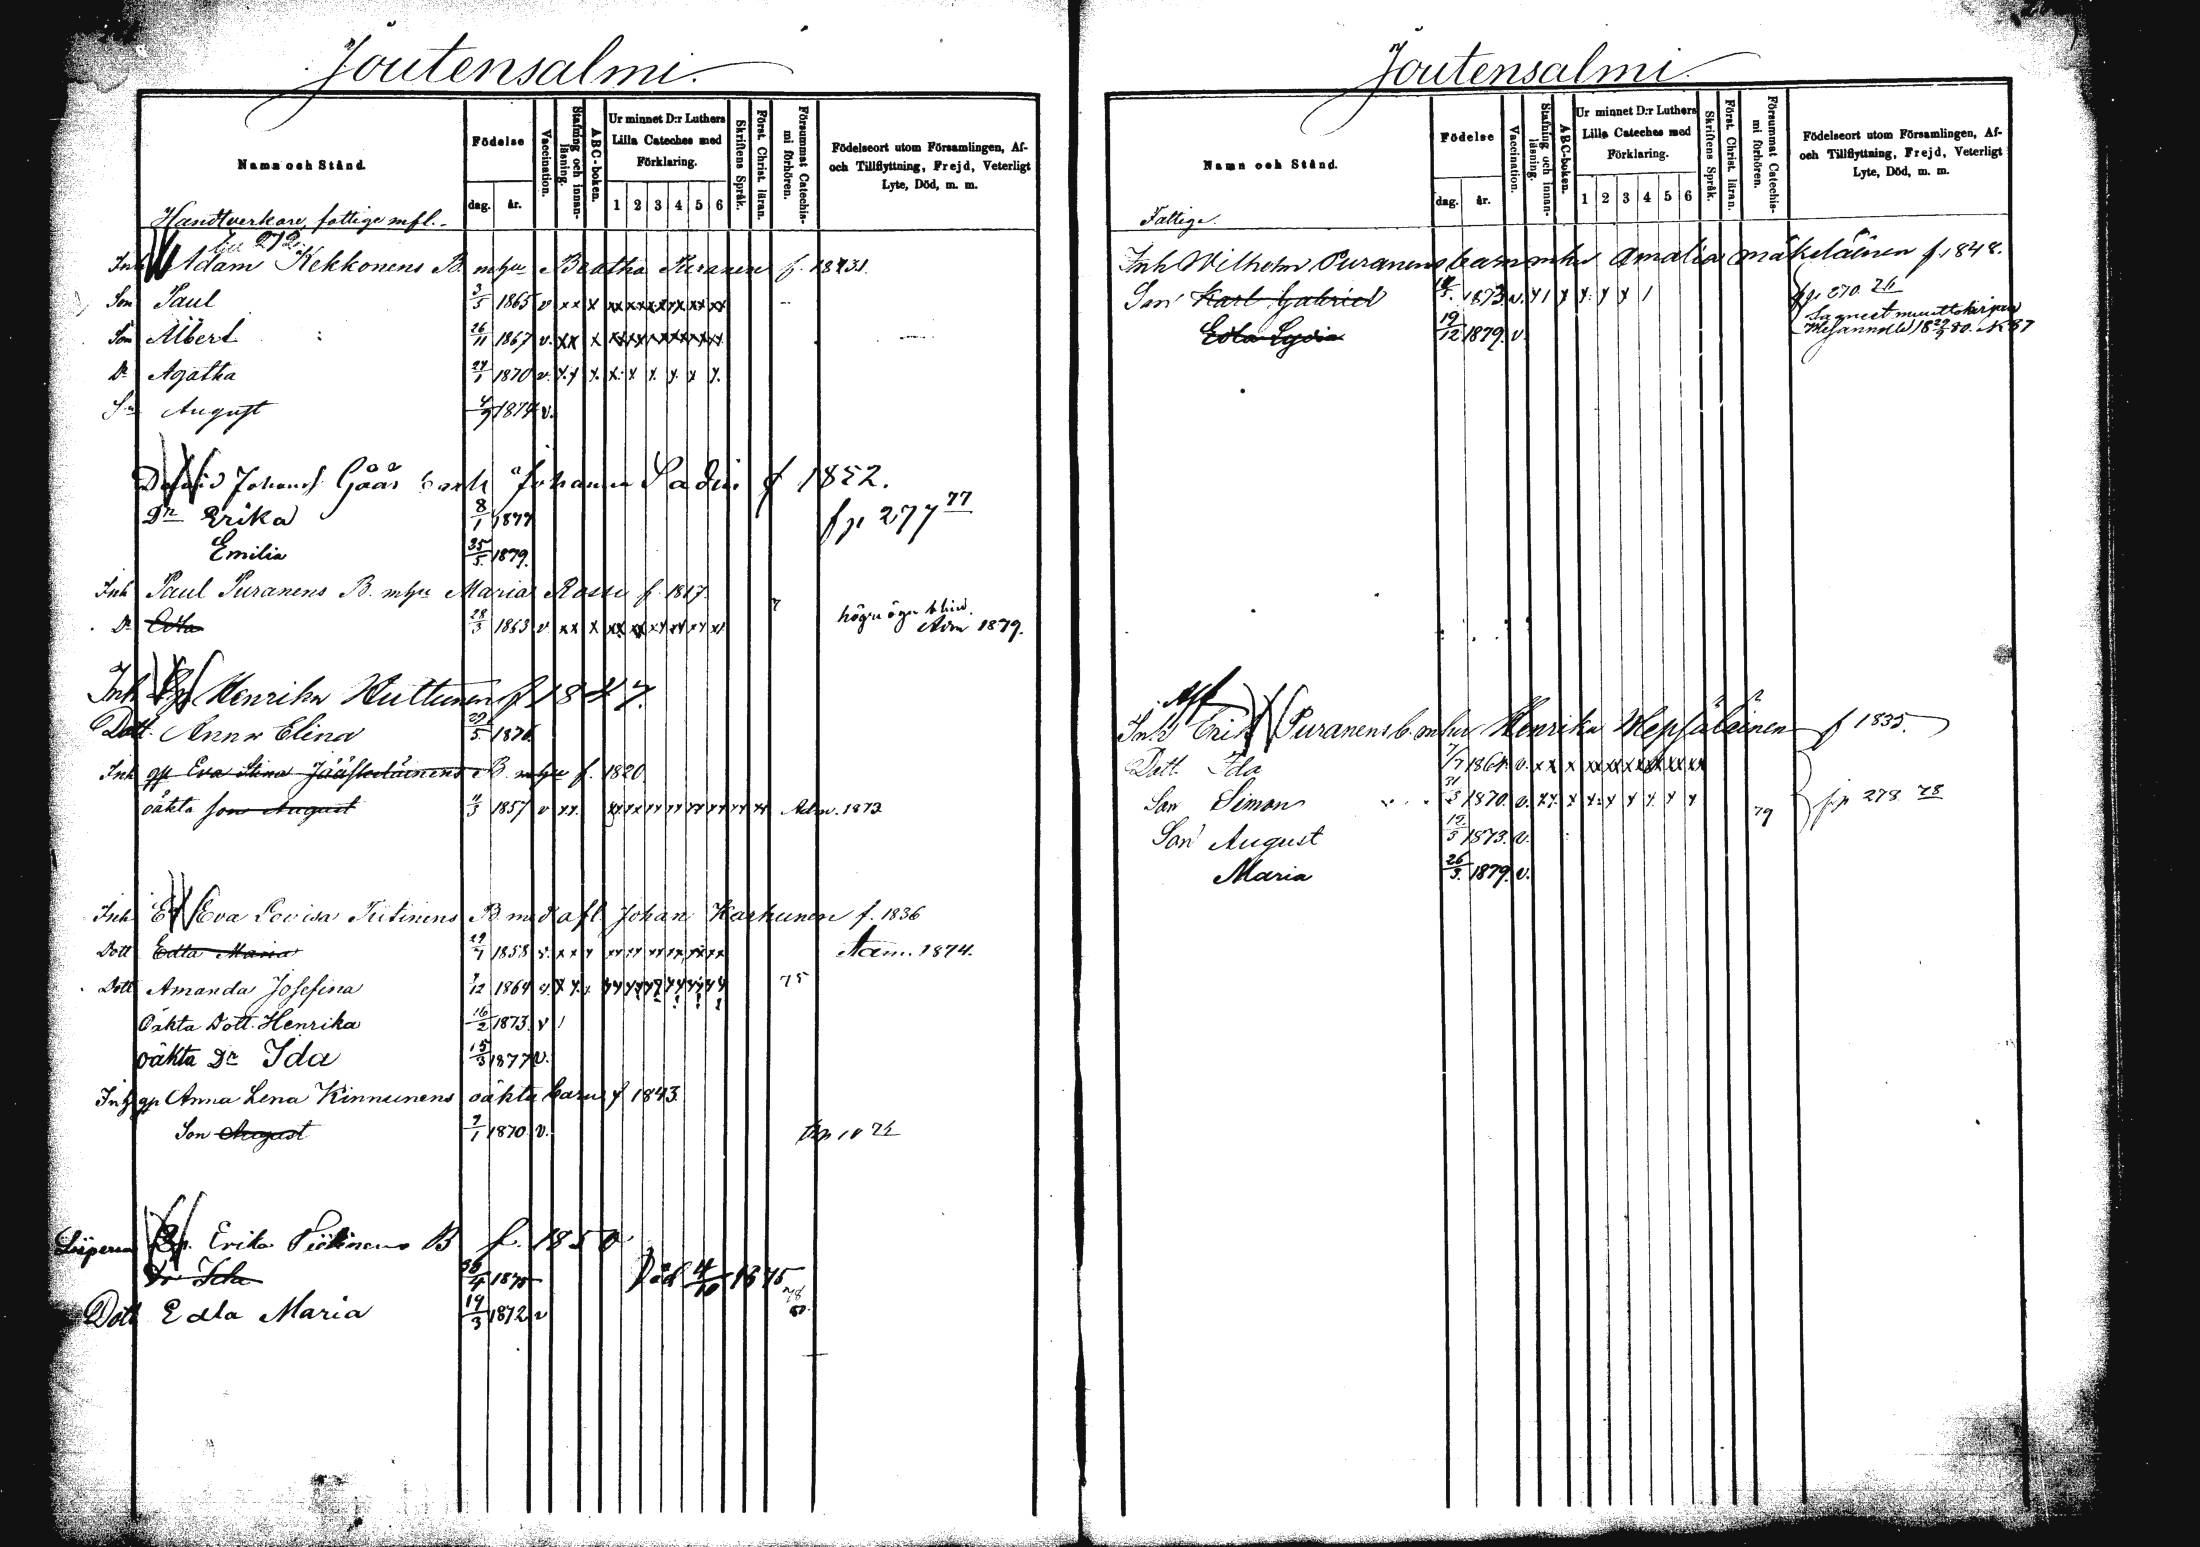 Joutensalmi.
Namn och Stånd.
Födelse
dag.
år.
Vaccination.
Stafning och innan-
läsning.
ABC-boken.
Ur minnet D:r Luthers
Lilla Cateches med
Förklaring.
1 2 3 4 5 6
Skriftens Språk.
Först. Christ. läran.
Försummat Catechis-
mi förhören.
Födelseort utom Församlingen, Af-
och Tillflyttning, Frejd, Veterligt
Lyte, Död, m. m.
Handtverkare, fattige mfl.
till 272
Inh Adam Kekkonens B. m hu Beatha Puranen f. 1831
Son Paul 3/5 1865 v xx x xx xx xx xx xx xx
Son Albert 26/11 1867 v. xx x xx xx xx xx xx xx
Dr Agatha 24/1 1870 v. x.x x. x. x x. x. x x.
Sn August 4/9 1874 v.
Johans Gåås barn Johanna Sadin f 1852.
Dr Erika 8/1 1877 fp 277 77
Emilia 25/5 1879.
Inh Paul Puranens B. m hu Maria Rossi f. 1817
Dr Edla 28/3 1863 v xx x xx xx xx xx xx xx högra ögat blind.
Adm 1879.
Inh gp Henrika Huttunen f 1847.
Dott. Anna Elina 29/5 1876
Inh gp Eva Stina Jääskeläinens B. m hu f. 1820
oäkta son August 11/3 1857 v xx. xx xx xx xx xx xx xx xx Adm. 1873
Inh Eva Lovisa Tiitinens B med afl. Johan Karhunen f. 1836
Dott Edla Maria 29/1 1858 v. xx x xx xx xx xx xx xx Adm. 1874.
Dott Amanda Josefina 7/12 1864 v. 75
Oäkta Dott. Henrika 16/2 1873 v /
oäkta Dr Ida 15/3 1877 v.
Inh gp Anna Lena Kinnunens oäkta barn f 1843
Son August 7/1 1870 v.
Gp. Erika B f. 1850
Dr Ida 1875 Död 4/10 1875
78
Dott Edla Maria 19/3 1872 v
Joutensalmi.
Namn och Stånd.
Födelse
dag.
år.
Vaccination.
Stafning och innan-
läsning.
ABC-boken.
Ur minnet D:r Luthers
Lilla Cateches med
Förklaring.
1 2 3 4 5 6
Skriftens Språk.
Först. Christ. läran.
Försummat Catechis-
mi förhören.
Födelseort utom Församlingen, Af-
och Tillflyttning, Frejd, Veterligt
Lyte, Död, m. m.
Fattige.
Inh Wilhelm Puranens barn m hu Amalia Mäkeläinen f. 1848.
Son Karl Gabriel 1873 v. x / x x. x x / fp 270
muuttokirjan
Edla Lydia 19/12 1879 v.
Aff
Inh Erik Puranens b. m hu Henrika Hepsäläinen f 1835.
Dott. Ida 7/7 1864 v. xx x xx xx xx xx xx xx
Son Simon 21/3 1870. v. xx. x x. x x x x x 79 fp 278 78
Son August 12/5 1873. v.
Maria 26/3 1879. v.